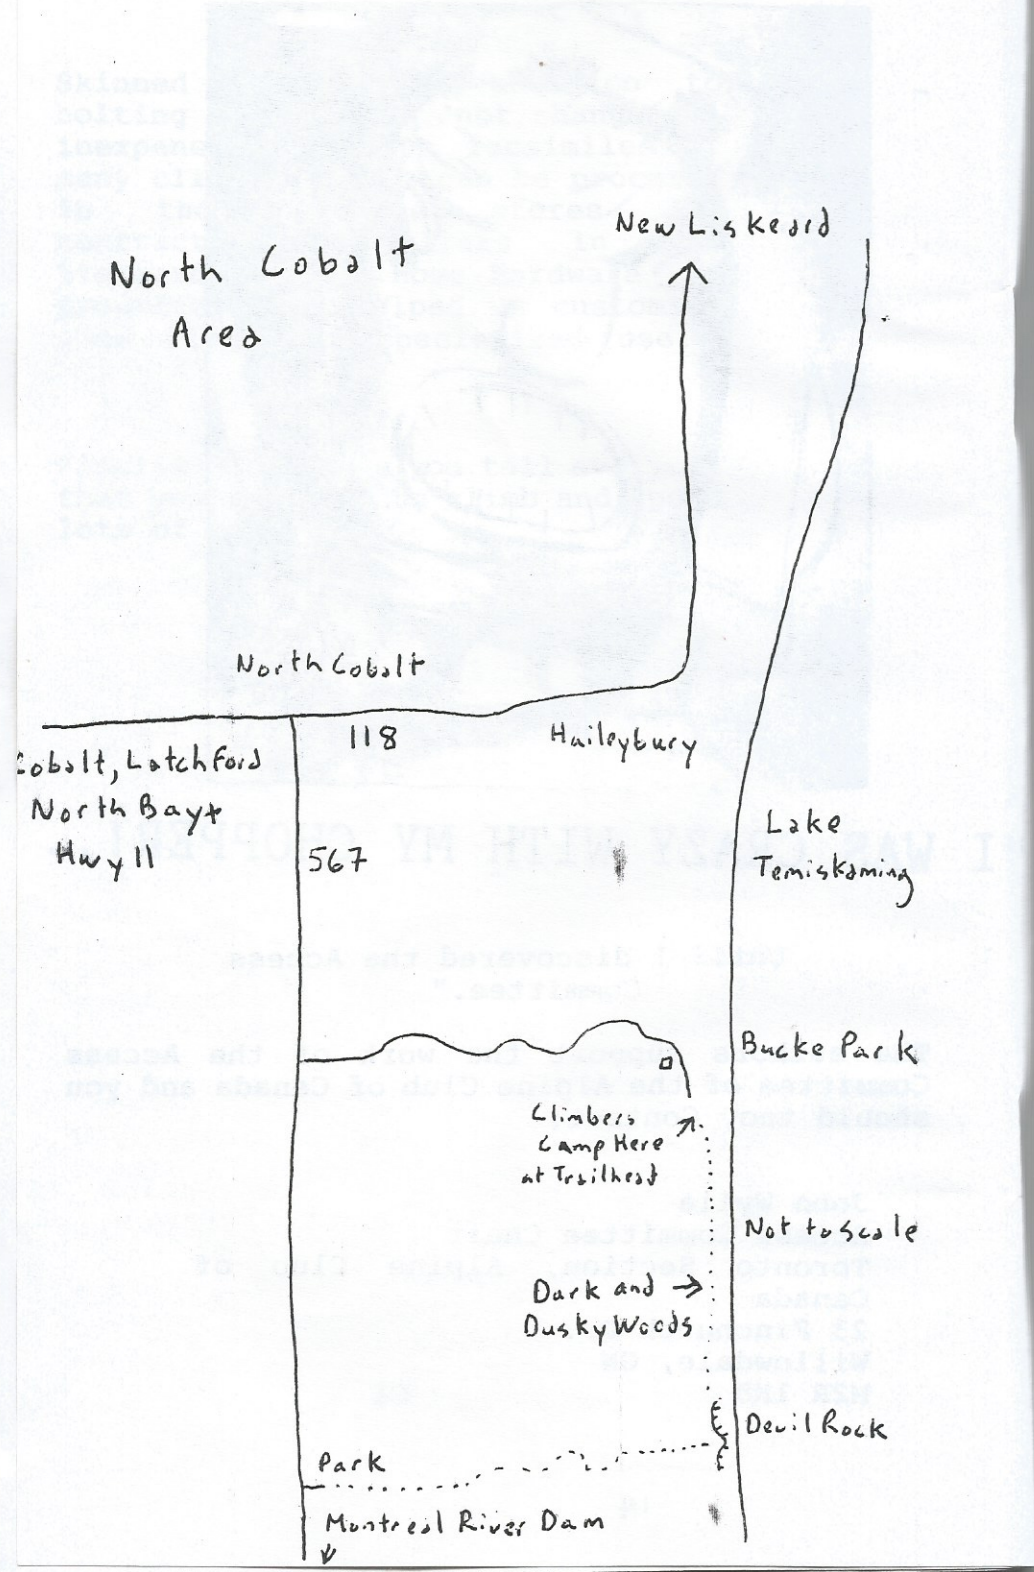 North Cobalt
Area
New Liskeard
North Cobalt
118
Haileybury
Cobalt, Latchford
North Bay +
Hwy 11
567
Lake
Temiskaming
Bucke Park
Climbers
Camp Here
at Trailhead
Not to scale
Dark and
Dusky Woods
Devil Rock
Park
Montreal River Dam